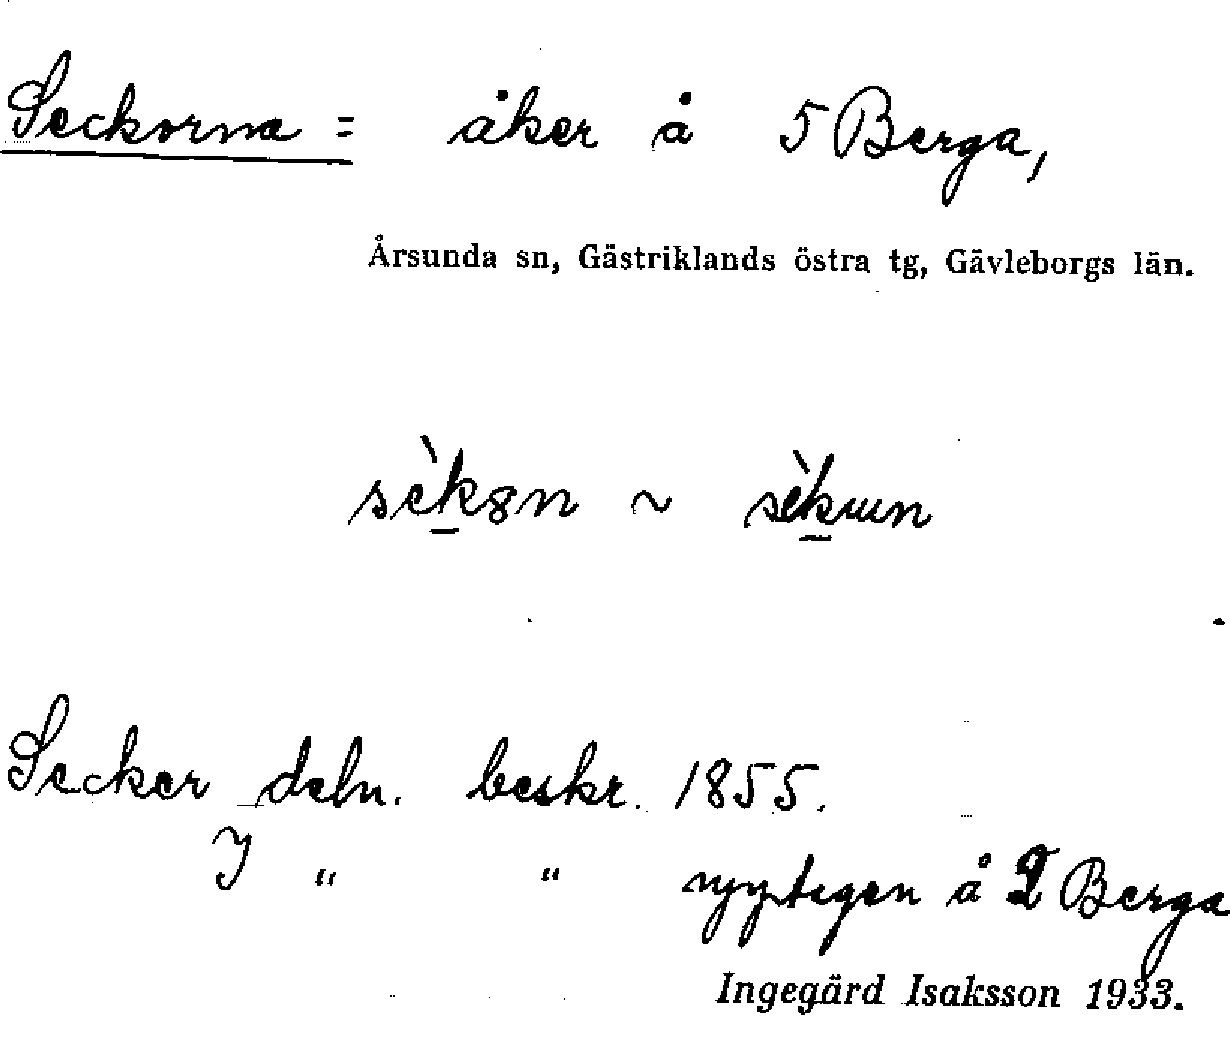 Seckorna = åker å 5 Berga,
Årsunda sn, Gästriklands östra tg, Gävleborgs län.
sèk̲8n ~ sèk̲ɯn
Secker deln. beskr. 1855.
I " " upptagen å 2 Berga
Ingegärd Isaksson 1933.